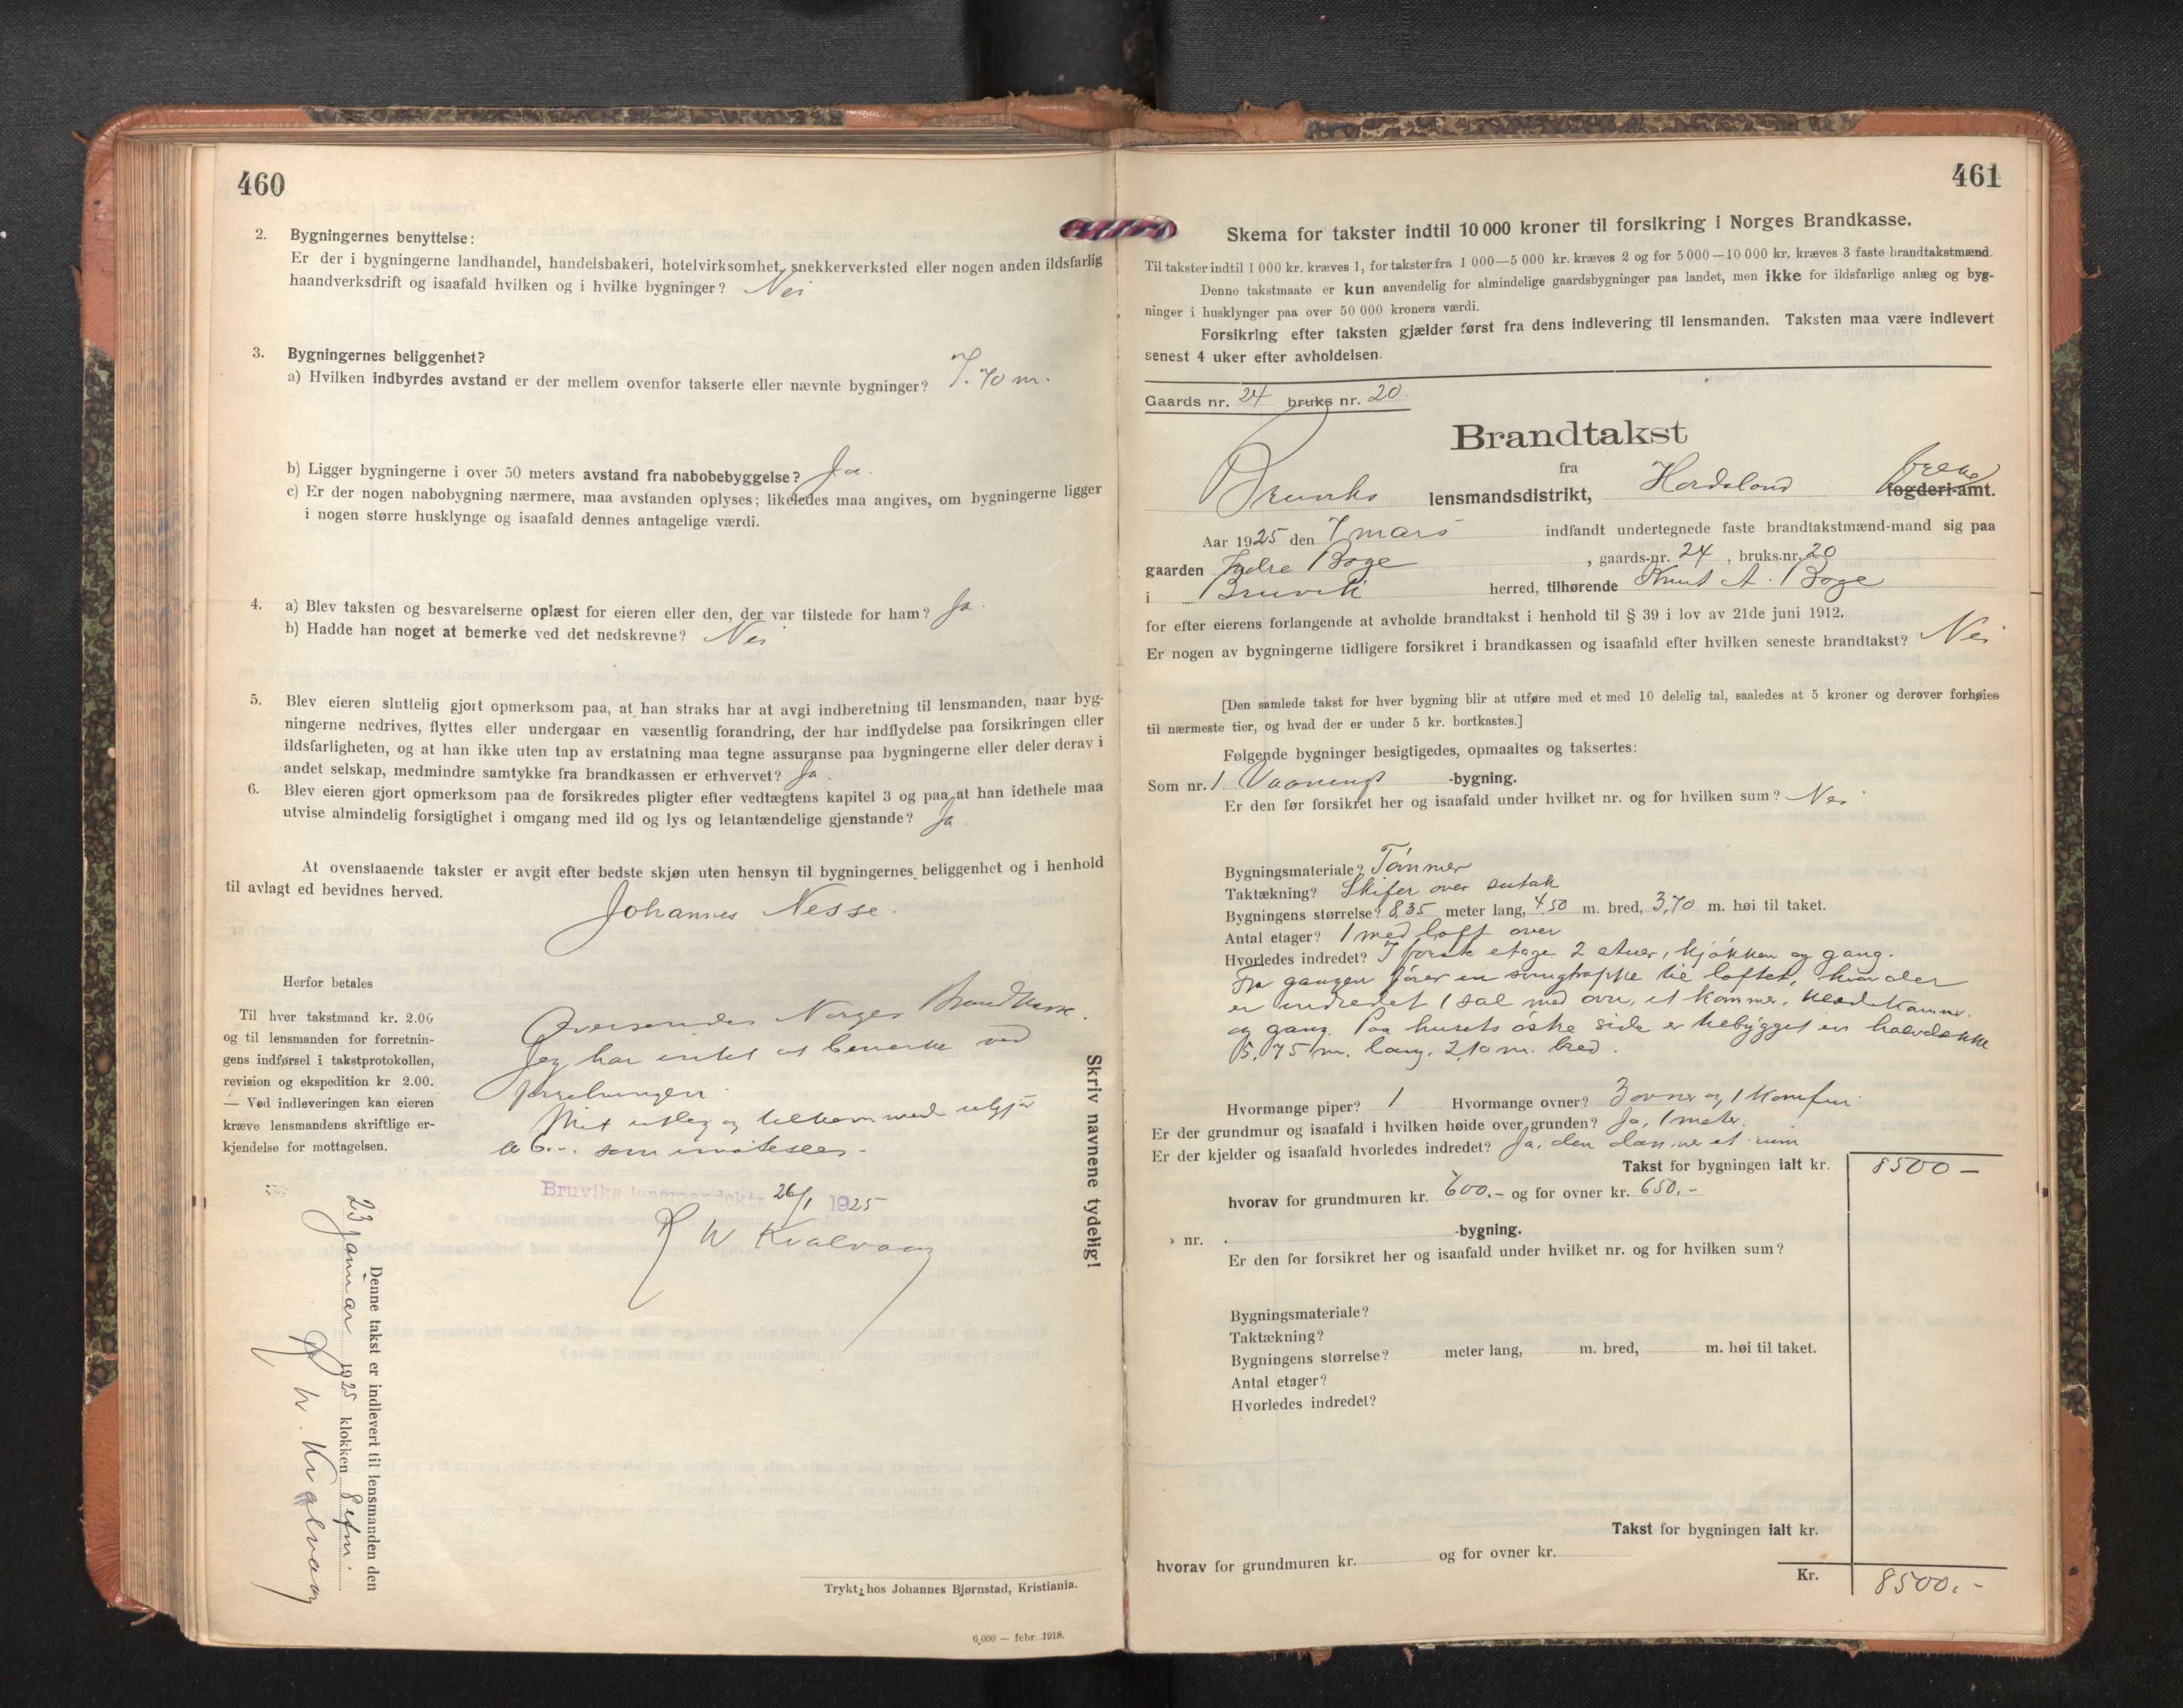 460
2. Bygningernes benyttelse:
Er der i bygningerne landhandel, handelsbakeri, hotelvirksomhet, snekkerverksted eller nogen anden ildsfarlig
haandverksdrift og isaafald hvilken og i hvilke bygninger? Nei
3. Bygningernes beliggenhet?
a) Hvilken indbyrdes avstand er der mellem ovenfor takserte eller nævnte bygninger? 7.70 m.
b) Ligger bygningerne i over 50 meters avstand fra nabobebyggelse? Ja.
c) Er der nogen nabobygning nærmere, maa avstanden oplyses; likeledes maa angives, om bygningerne ligger
i nogen større husklynge og isaafald dennes antagelige værdi.
4. a) Blev taksten og besvarelserne oplæst for eieren eller den, der var tilstede for ham? Ja.
b) Hadde han noget at bemerke ved det nedskrevne? Nei
5. Blev eieren sluttelig gjort opmerksom paa, at han straks har at avgi indberetning til lensmanden, naar byg-
ningerne nedrives, flyttes eller undergaar en væsentlig forandring, der har indflydelse paa forsikringen eller
ildsfarligheten, og at han ikke uten tap av erstatning maa tegne assuranse paa bygningerne eller deler derav i
andet selskap, medmindre samtykke fra brandkassen er erhvervet? Ja.
6. Blev eieren gjort opmerksom paa de forsikredes pligter efter vedtægtens kapitel 3 og paa at han idethele maa
utvise almindelig forsigtighet i omgang med ild og lys og letantændelige gjenstande? Ja.
At ovenstaaende takster er avgit efter bedste skjøn uten hensyn til bygningernes beliggenhet og i henhold
til avlagt ed bevidnes herved.
Johannes Nesse.
Herfor betales
Til hver takstmand kr. 2.00
og til lensmanden for forretnin-
gens indførsel i takstprotokollen,
revision og ekspedition kr 2.00.
— Ved indleveringen kan eieren
kræve lensmandens skriftlige er-
kjendelse for mottagelsen.
Oversendes Norges Brandkasse.
Jeg har intet at bemerke ved
forretningen.
Mit utlæg og tilkommende utgjør
kr 6.-. som
Bruviks lensmandsktr. 26/1 1925
W Kvalvaag
Skriv navnene tydelig!
Denne takst er indlevert til lensmanden den
23 Januar 1925 klokken 8 efm.
W. Kvalvaag
Trykt hos Johannes Bjørnstad, Kristiania.
6,000 — febr. 1918.
461
Skema for takster indtil 10 000 kroner til forsikring i Norges Brandkasse.
Til takster indtil 1 000 kr. kræves 1, for takster fra 1 000—5 000 kr. kræves 2 og for 5 000—10 000 kr. kræves 3 faste brandtakstmænd.
Denne takstmaate er kun anvendelig for almindelige gaardsbygninger paa landet, men ikke for ildsfarlige anlæg og byg-
ninger i husklynger paa over 50 000 kroners værdi.
Forsikring efter taksten gjælder først fra dens indlevering til lensmanden. Taksten maa være indlevert
senest 4 uker efter avholdelsen.
Gaards nr. 24 bruks nr. 20.
Brandtakst
fra
Bruviks lensmandsdistrikt, Hordaland fogderi-amt.
Aar 1925 den 7 mars indfandt undertegnede faste brandtakstmænd-mand sig paa
gaarden Indre Boge, gaards-nr. 24, bruks.nr. 20
i Bruvik herred, tilhørende Knut A. Boge
for efter eierens forlangende at avholde brandtakst i henhold til § 39 i lov av 21de juni 1912.
Er nogen av bygningerne tidligere forsikret i brandkassen og isaafald efter hvilken seneste brandtakst? Nei
[Den samlede takst for hver bygning blir at utføre med et med 10 delelig tal, saaledes at 5 kroner og derover forhøies
til nærmeste tier, og hvad der er under 5 kr. bortkastes.]
Følgende bygninger besigtigedes, opmaaltes og taksertes:
Som nr. 1 Vaanings -bygning.
Er den før forsikret her og isaafald under hvilket nr. og for hvilken sum? Nei
Bygningsmateriale? Tømmer
Taktækning? Skifer over sutak
Bygningens størrelse? 8,35 meter lang, 4,50 m. bred, 3,70 m. høi til taket.
Antal etager? 1 med loft over
Hvorledes indredet? I første etage 2 stuer, kjøkken og gang.
Fra gangen fører en svingtrappe til loftet, hvor der
er indredet 1 sal med ovn, et kammer, klædekammer
og gang. Paa husets østre side er tilbygget en halvdække
5,75 m. lang, 2,10 m. bred.
Hvormange piper? 1 Hvormange ovner? 3 ovner og 1 komfur
Er der grundmur og isaafald i hvilken høide over grunden? Ja, 1 meter.
Er der kjelder og isaafald hvorledes indredet? Ja, den danner et rum
Takst for bygningen ialt kr. 8500 —
hvorav for grundmuren kr. 600.- og for ovner kr. 650.-
» nr. -bygning.
Er den før forsikret her og isaafald under hvilket nr. og for hvilken sum?
Bygningsmateriale?
Taktækning?
Bygningens størrelse? meter lang, m. bred, m. høi til taket.
Antal etager?
Hvorledes indredet?
Takst for bygningen ialt kr.
hvorav for grundmuren kr. og for ovner kr.
Kr. 8500.-